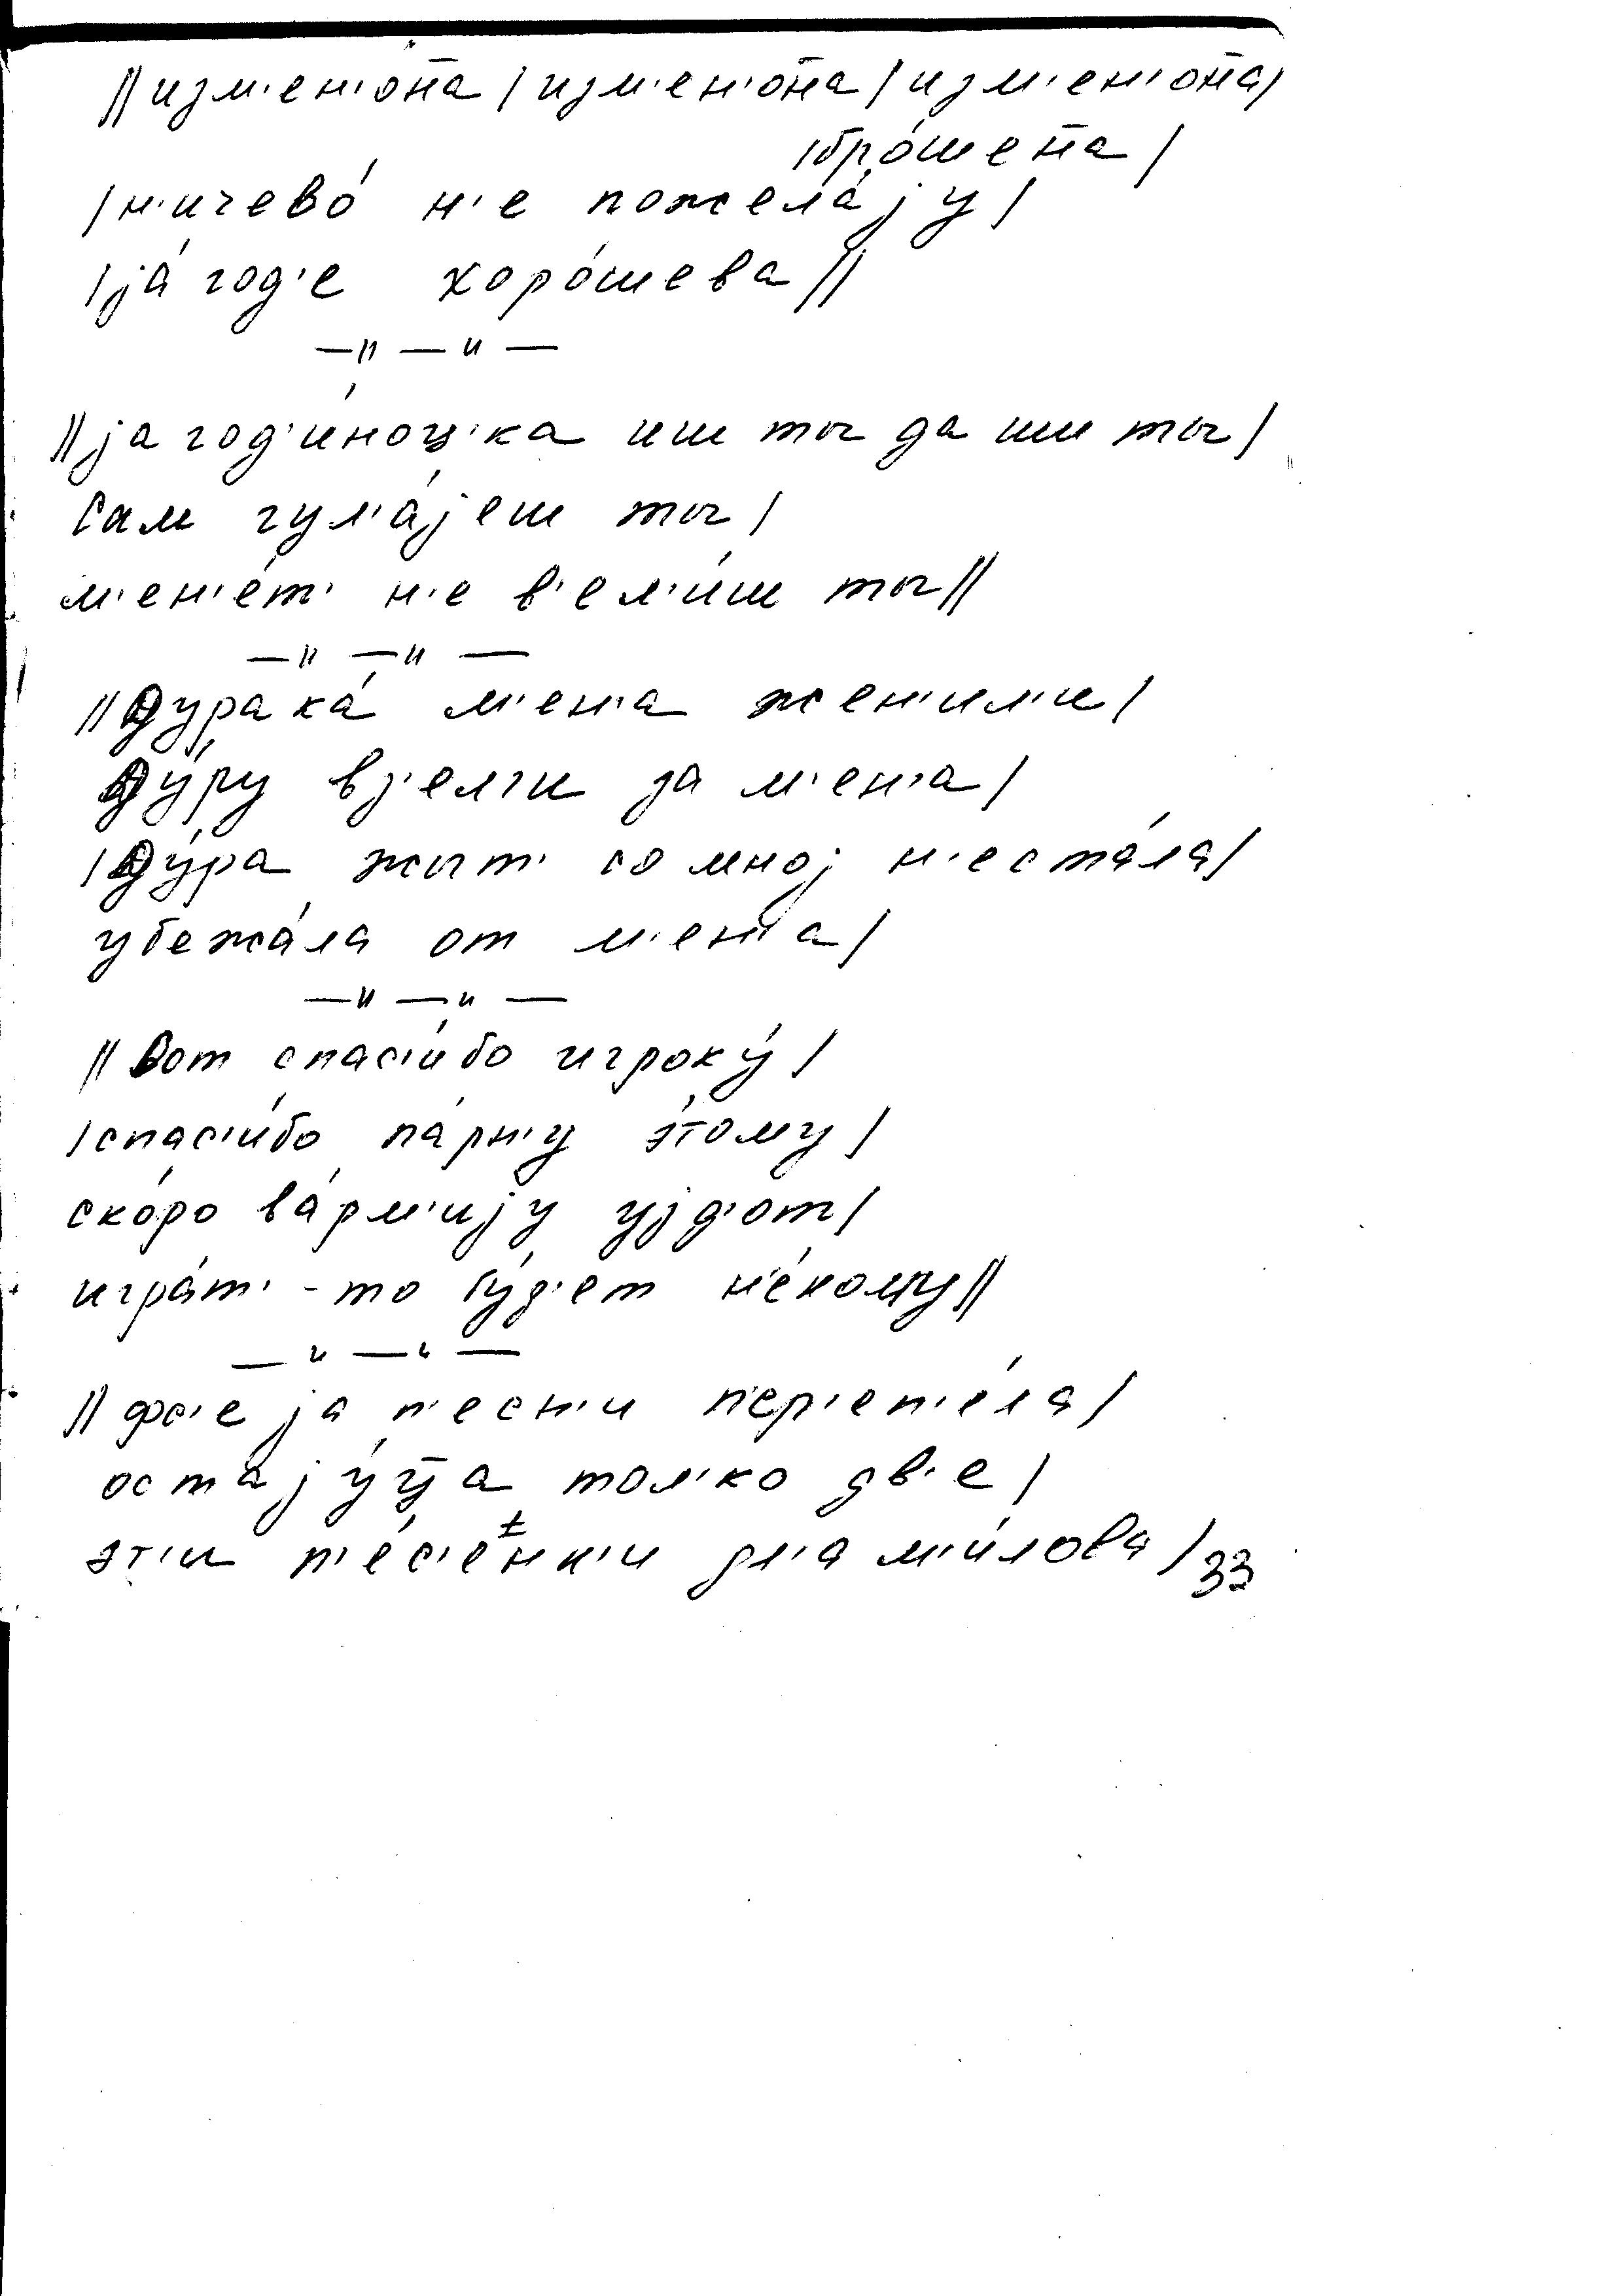 //изм'ен'о́н̄а / изм'ен'о́н̄а / изм'ен'о́н̄а/
/бро́шен̄а /
/н'ичево́ н'е пожела́jу /
/jа́год'е хоро́шева //
—"—"—
//jагод'и́ноц'ка иш ты да иш ты /
сам гул'а́jеш ты /
м'ен'е́т' н'е в'ел'и́ш ты//
—"—"—
//дурака́ м'ен'а жен'ил'и /
ду́ру вз'ел'и за м'ен'а /
/ду́ра жыт' со мноj н'естала/
убежа́ла от м'ен'а /
—"—"—
//Вот спас'и́бо игроку́ /
/спас'и́бо па́рн'у э́тому /
ско́ро ва́рм'иjу уjд'от /
игра́т'-то бу́д'ет н'е́кому//
—"—"—
//фс'е jа п'есн'и п'ер'еп'е́ла /
остаjу́ц̄а тол'ко дв'е /
эт'и п'е́с'енк'и дл'а м'и́лова /
±
33